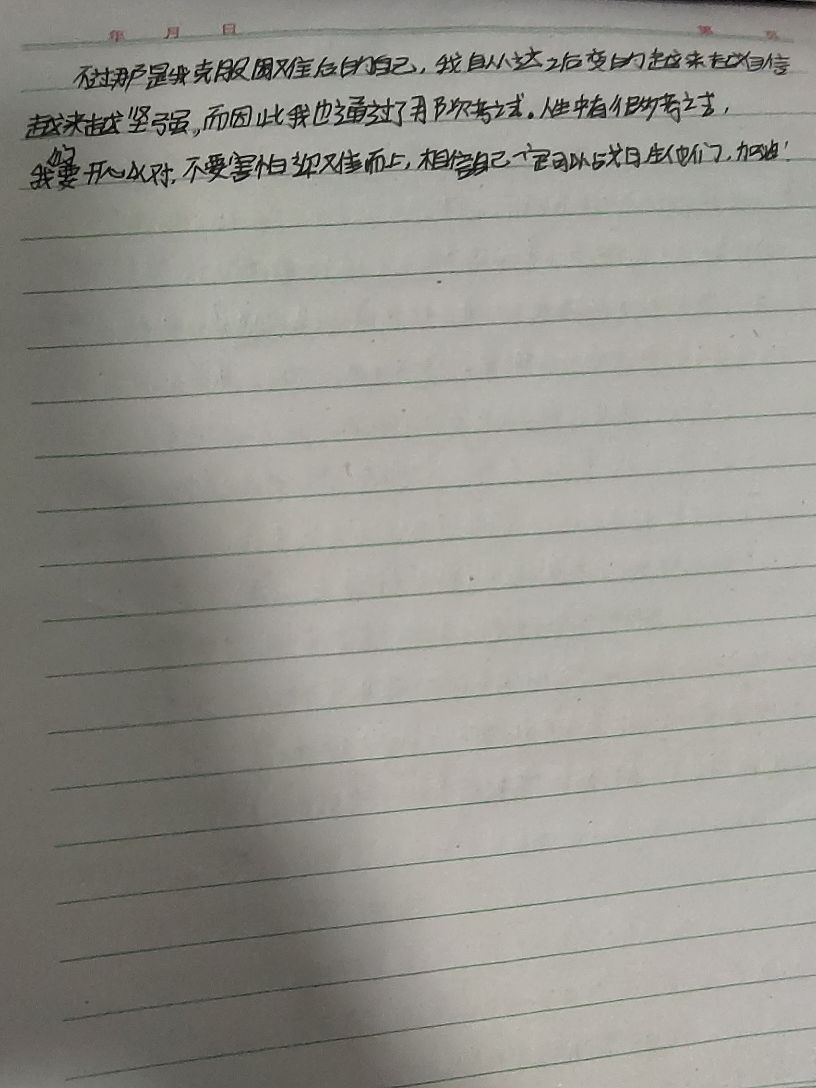 年 月 日 第 页
不过那是我克服困难后的自己，我自从这之后变的越来越自信
越来越坚强。而因此我也通过了那次考试。人生中有很多考试，
我们要开心以对，不要害怕迎难而上，相信自己一定可以战胜他们，加油！